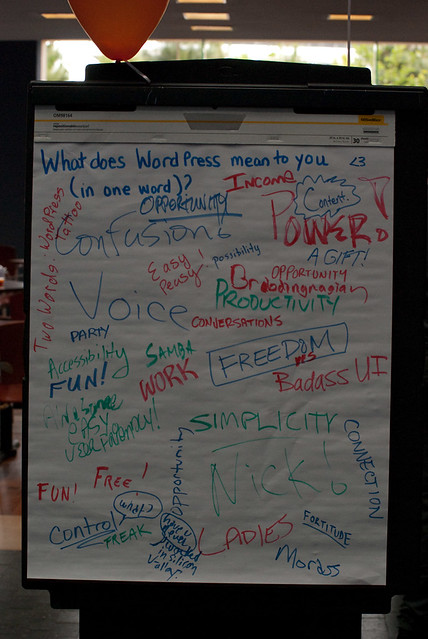 What does WordPress mean to you <3
(in one word)?
INCOME
Content.
OPPORTUNITY
POWER
Two Words: WordPress Tattoo
Confusion!
A GIFT!
possibility
Easy Peasy!
OPPORTUNITY
Brobdingnagian
Voice
PRODUCTIVITY
CONVERSATIONS
PARTY
Accessibility
SAMBA
FREEDOM
FUN!
WORK
Badass UI
EASY
SIMPLICITY
CONNECTION
Opportunity
Nick!
FUN!
FREE!
Control
FREAK
FORTITUDE
LADIES
in silicon
Valley
30